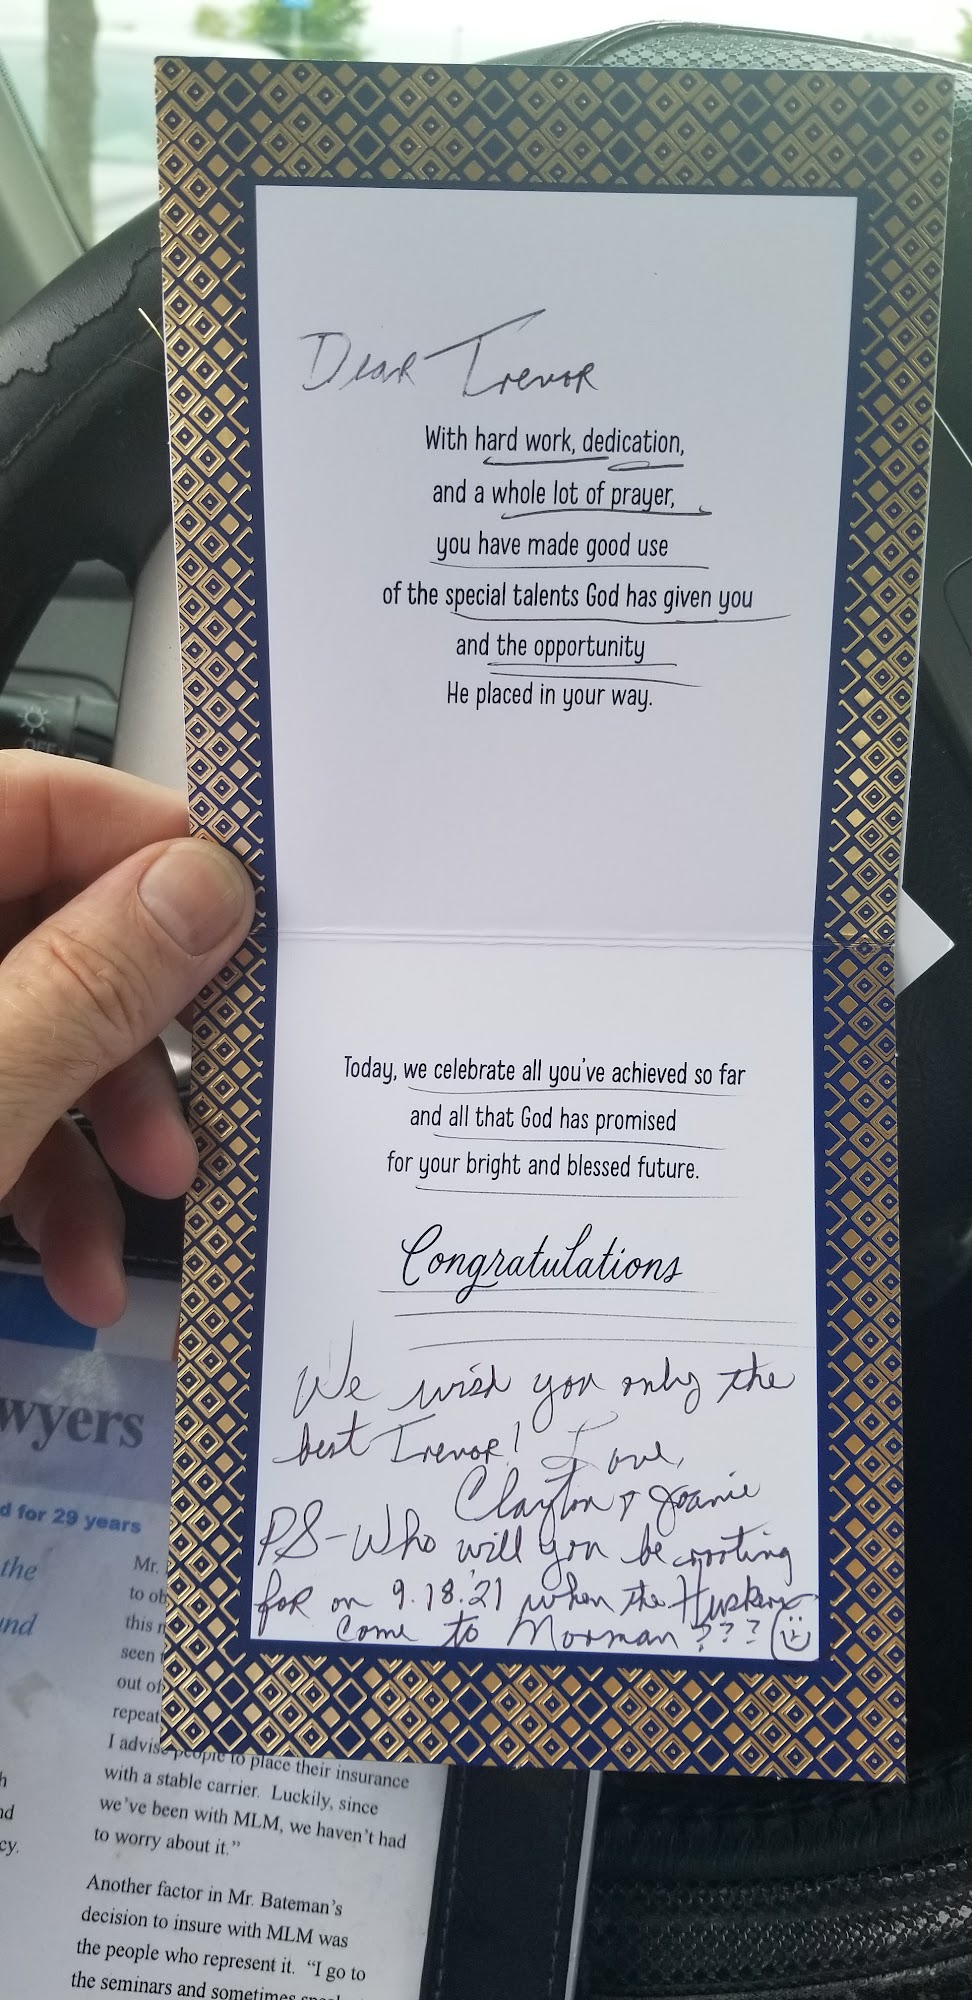 Dear Trevor
With hard work, dedication,
and a whole lot of prayer,
you have made good use
of the special talents God has given you
and the opportunity
He placed in your way.
Today, we celebrate all you've achieved so far
and all that God has promised
for your bright and blessed future.
Congratulations
We wish you only the
best Trevor! Love,
Clayton & Joanie
PS-Who will you be rooting
for on 9.18.21 when the Huskers
come to Norman???
OFF
wyers
d for 29 years
the
nd
h
nd
cy.
Mr.
to ob
this
seen
out of
repeat
I advise people to place their insurance
with a stable carrier. Luckily, since
we've been with MLM, we haven't had
to worry about it."
Another factor in Mr. Bateman's
decision to insure with MLM was
the people who represent it. "I go to
the seminars and sometimes